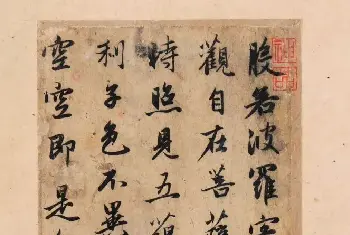 般若波羅蜜
觀自在菩薩
時照見五蘊
利子色不異
空空即是